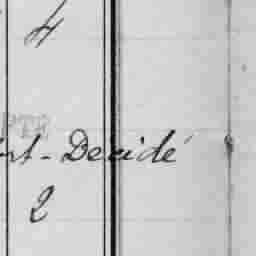 4
rt - Decidé
2